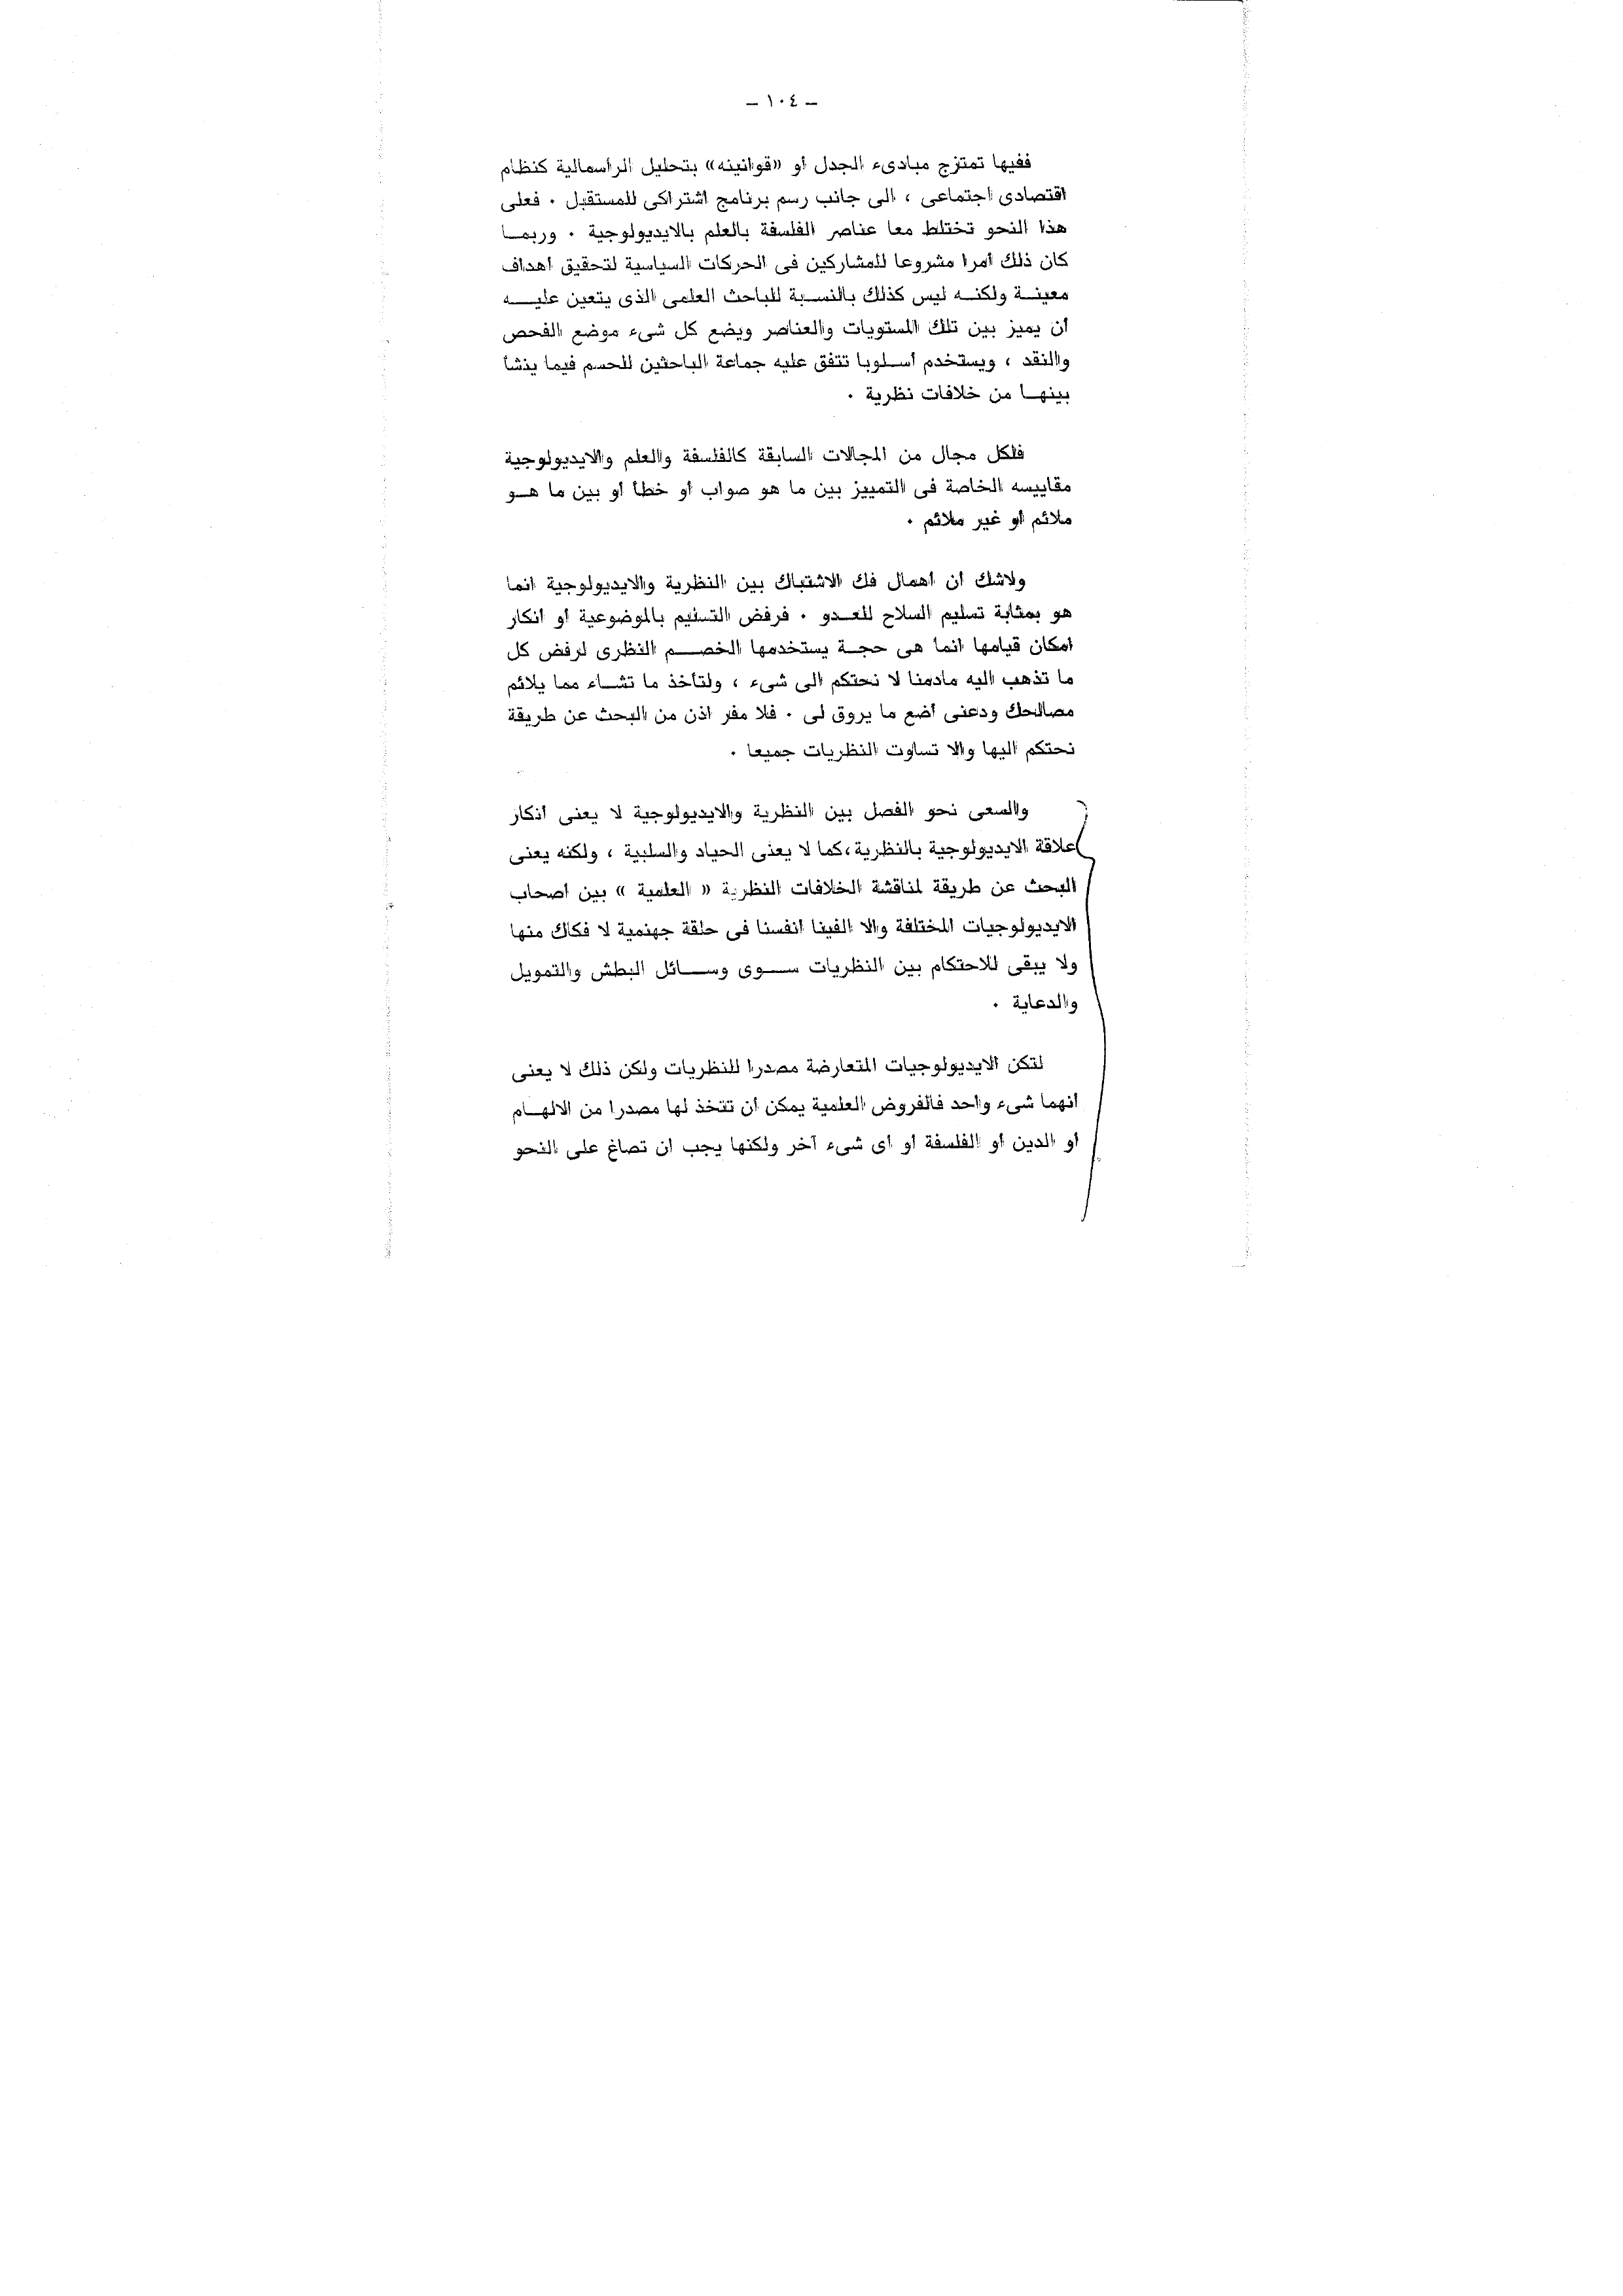 – ١٠٤ –
ففيها تمتزج مبادىء الجدل أو «قوانينه» بتحليل الرأسمالية كنظام
اقتصادى اجتماعى ، الى جانب رسم برنامج اشتراكى للمستقبل ٠ فعلى
هذا النحو تختلط معا عناصر الفلسفة بالعلم بالايديولوجية ٠ وربمــا
كان ذلك أمرا مشروعا للمشاركين فى الحركات السياسية لتحقيق أهداف
معينــة ولكنــه ليس كذلك بالنســبة للباحث العلمى الذى يتعين عليـــه
أن يميز بين تلك المستويات والعناصر ويضع كل شىء موضع الفحص
والنقد ، ويستخدم أســلوبا تتفق عليه جماعة الباحثين للحسم فيما ينشأ
بينهــا من خلافات نظرية ٠
فلكل مجال من المجالات السابقة كالفلسفة والعلم والايديولوجية
مقاييسه الخاصة فى التمييز بين ما هو صواب أو خطأ أو بين ما هــو
ملائم أو غير ملائم ٠
ولاشك أن اهمال فك الاشتباك بين النظرية والايديولوجية انما
هو بمثابة تسليم السلاح للعــدو ٠ فرفض التسليم بالموضوعية أو انكار
امكان قيامها انما هى حجــة يستخدمها الخصـــم النظرى لرفض كل
ما تذهب اليه مادمنا لا نحتكم الى شىء ، ولتأخذ ما تشــاء مما يلائم
مصالحك ودعنى أضع ما يروق لى ٠ فلا مفر اذن من البحث عن طريقة
نحتكم اليها والا تساوت النظريات جميعا ٠
والسعى نحو الفصل بين النظرية والايديولوجية لا يعنى انكار
علاقة الايديولوجية بالنظرية،كما لا يعنى الحياد والسلبية ، ولكنه يعنى
البحث عن طريقة لمناقشة الخلافات النظرية « العلمية » بين أصحاب
الايديولوجيات المختلفة والا الفينا انفسنا فى حلقة جهنمية لا فكاك منها
ولا يبقى للاحتكام بين النظريات ســوى وســائل البطش والتمويل
والدعاية ٠
لتكن الايديولوجيات المتعارضة مصدرا للنظريات ولكن ذلك لا يعنى
أنهما شىء واحد فالفروض العلمية يمكن أن تتخذ لها مصدرا من الالهــام
أو الدين أو الفلسفة أو أى شىء آخر ولكنها يجب ان تصاغ على النحو